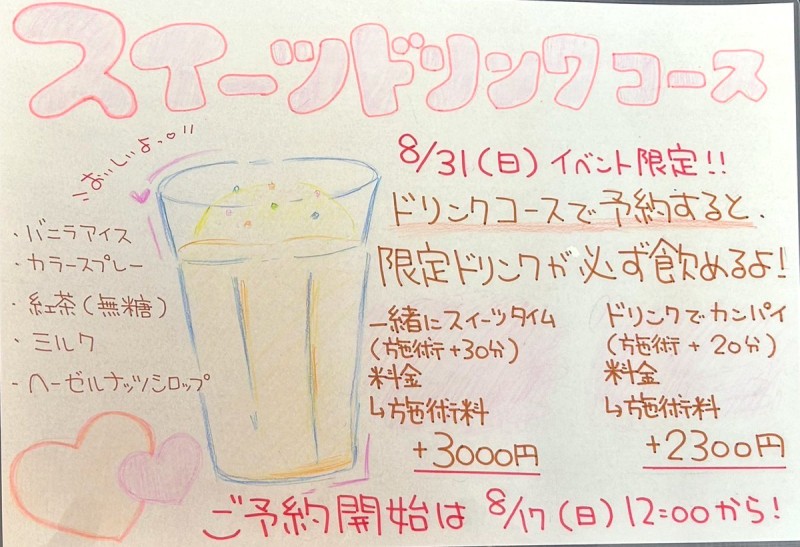 スイーツドリンクコース
おいしいよっ♡!!
8/31(日)イベント限定!!
ドリンクコースで予約すると、
限定ドリンクが必ず飲めるよ!
・バニラアイス
・カラースプレー
・紅茶(無糖)
・ミルク
・ヘーゼルナッツシロップ
一緒にスイーツタイム
(施術+30分)
料金
↳施術料
+3000円
ドリンクでカンパイ
(施術+20分)
料金
↳施術料
+2300円
ご予約開始は8/17(日)12:00から!